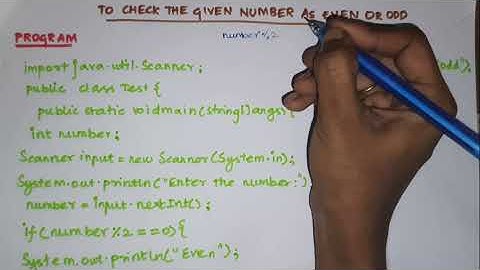 TO CHECK THE GIVEN NUMBER AS EVEN OR ODD
PROGRAM
number%2
import java.util.Scanner;
public class Test{
public static voidmain(string[]args){
int number;
Scanner input=new Scanner(System.in);
System.out.println("Enter the number:")
number=input.nextInt();
if(number%2==0){
System.out.println("Even");
odd");